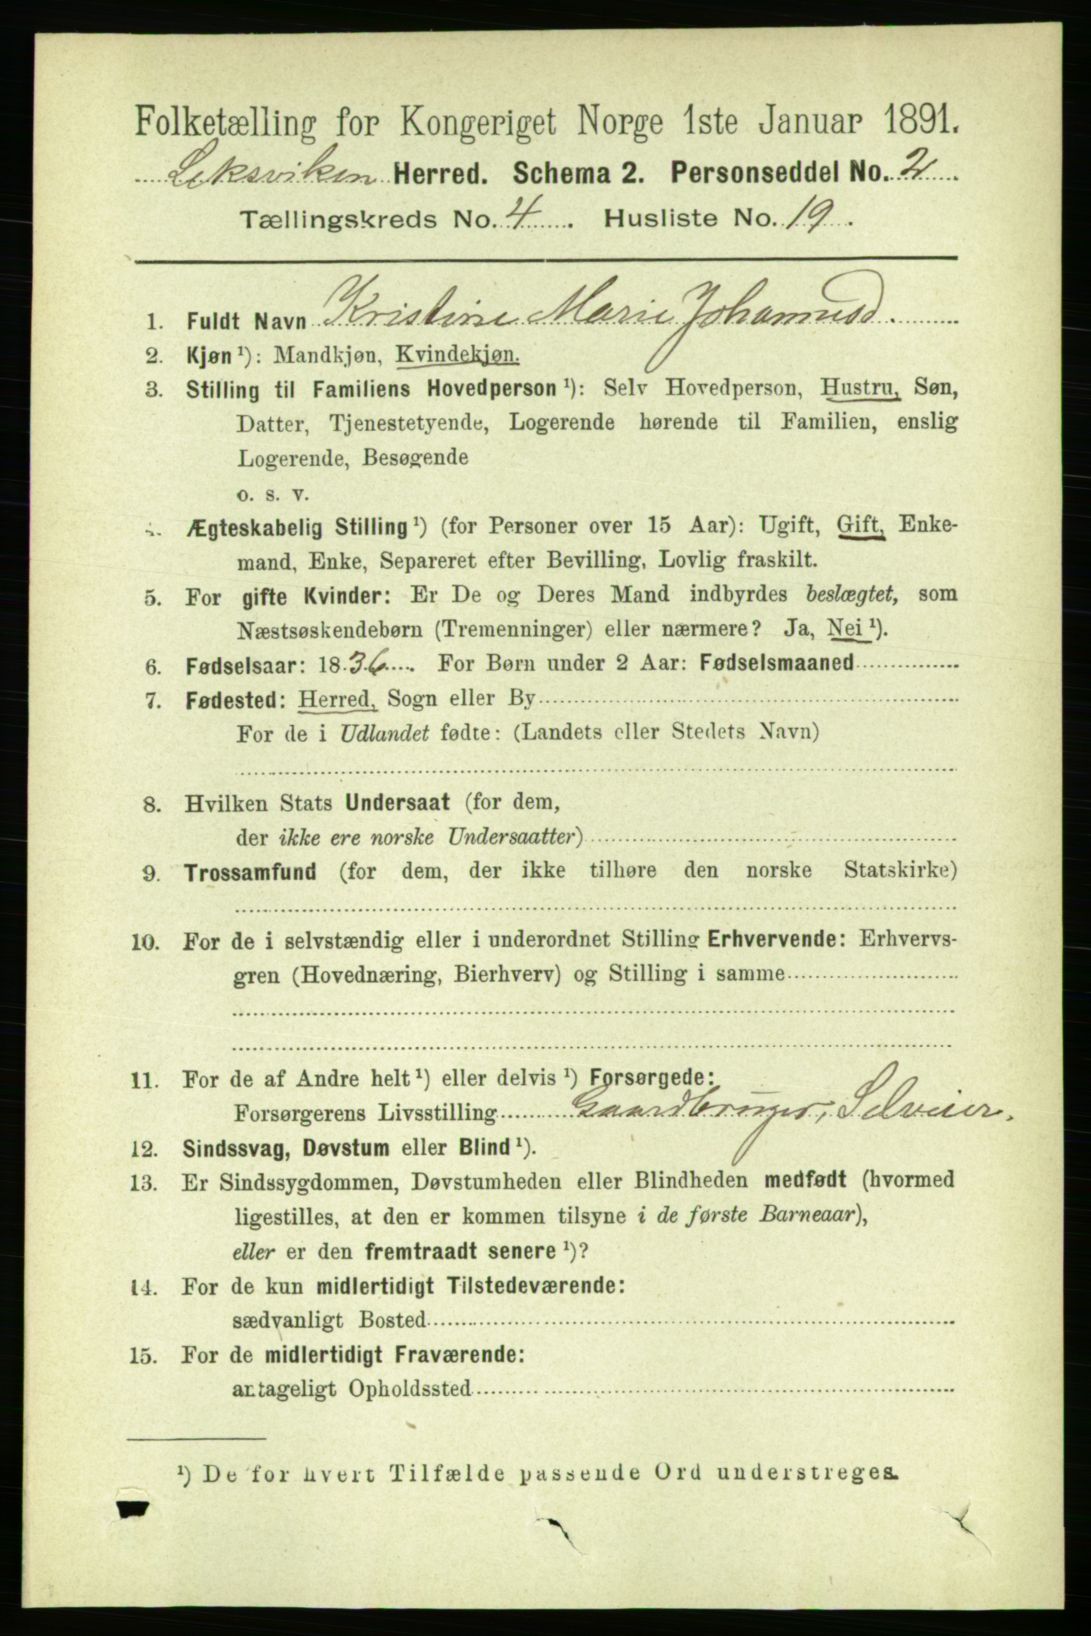 Folketælling for Kongeriget Norge 1ste Januar 1891.
Leksviken Herred. Schema 2. Personseddel No. 2
Tællingskreds No. 4. Husliste No. 19.
1. Fuldt Navn Kristine Marie Johannesd.
2. Kjøn ¹): Mandkjøn, Kvindekjøn.
3. Stilling til Familiens Hovedperson ¹): Selv Hovedperson, Hustru, Søn,
Datter, Tjenestetyende, Logerende hørende til Familien, enslig
Logerende, Besøgende
o. s. v.
4. Ægteskabelig Stilling ¹) (for Personer over 15 Aar): Ugift, Gift, Enke-
mand, Enke, Separeret efter Bevilling, Lovlig fraskilt.
5. For gifte Kvinder: Er De og Deres Mand indbyrdes beslægtet, som
Næstsøskendebørn (Tremenninger) eller nærmere? Ja, Nei ¹).
6. Fødselsaar: 1836. For Børn under 2 Aar: Fødselsmaaned
7. Fødested: Herred, Sogn eller By
For de i Udlandet fødte: (Landets eller Stedets Navn)
8. Hvilken Stats Undersaat (for dem,
der ikke ere norske Undersaatter)
9. Trossamfund (for dem, der ikke tilhøre den norske Statskirke)
10. For de i selvstændig eller i underordnet Stilling Erhvervende: Erhvervs-
gren (Hovednæring, Bierhverv) og Stilling i samme
11. For de af Andre helt ¹) eller delvis ¹) Forsørgede:
Forsørgerens Livsstilling Gaardbruger, Selveier.
12. Sindssvag, Døvstum eller Blind ¹).
13. Er Sindssygdommen, Døvstumheden eller Blindheden medfødt (hvormed
ligestilles, at den er kommen tilsyne i de første Barneaar),
eller er den fremtraadt senere ¹)?
14. For de kun midlertidigt Tilstedeværende:
sædvanligt Bosted
15. For de midlertidigt Fraværende:
antageligt Opholdssted
¹) De for hvert Tilfælde passende Ord understreges.